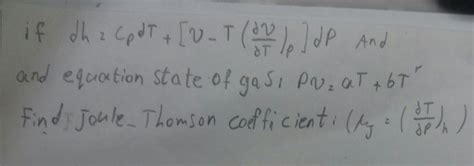 if dh = CpdT + [v - T (∂v/∂T)p] dP And
and equation State of gas: Pv = aT + bT^r
Find Joule-Thomson coefficient: (μJ = (∂T/∂P)h)